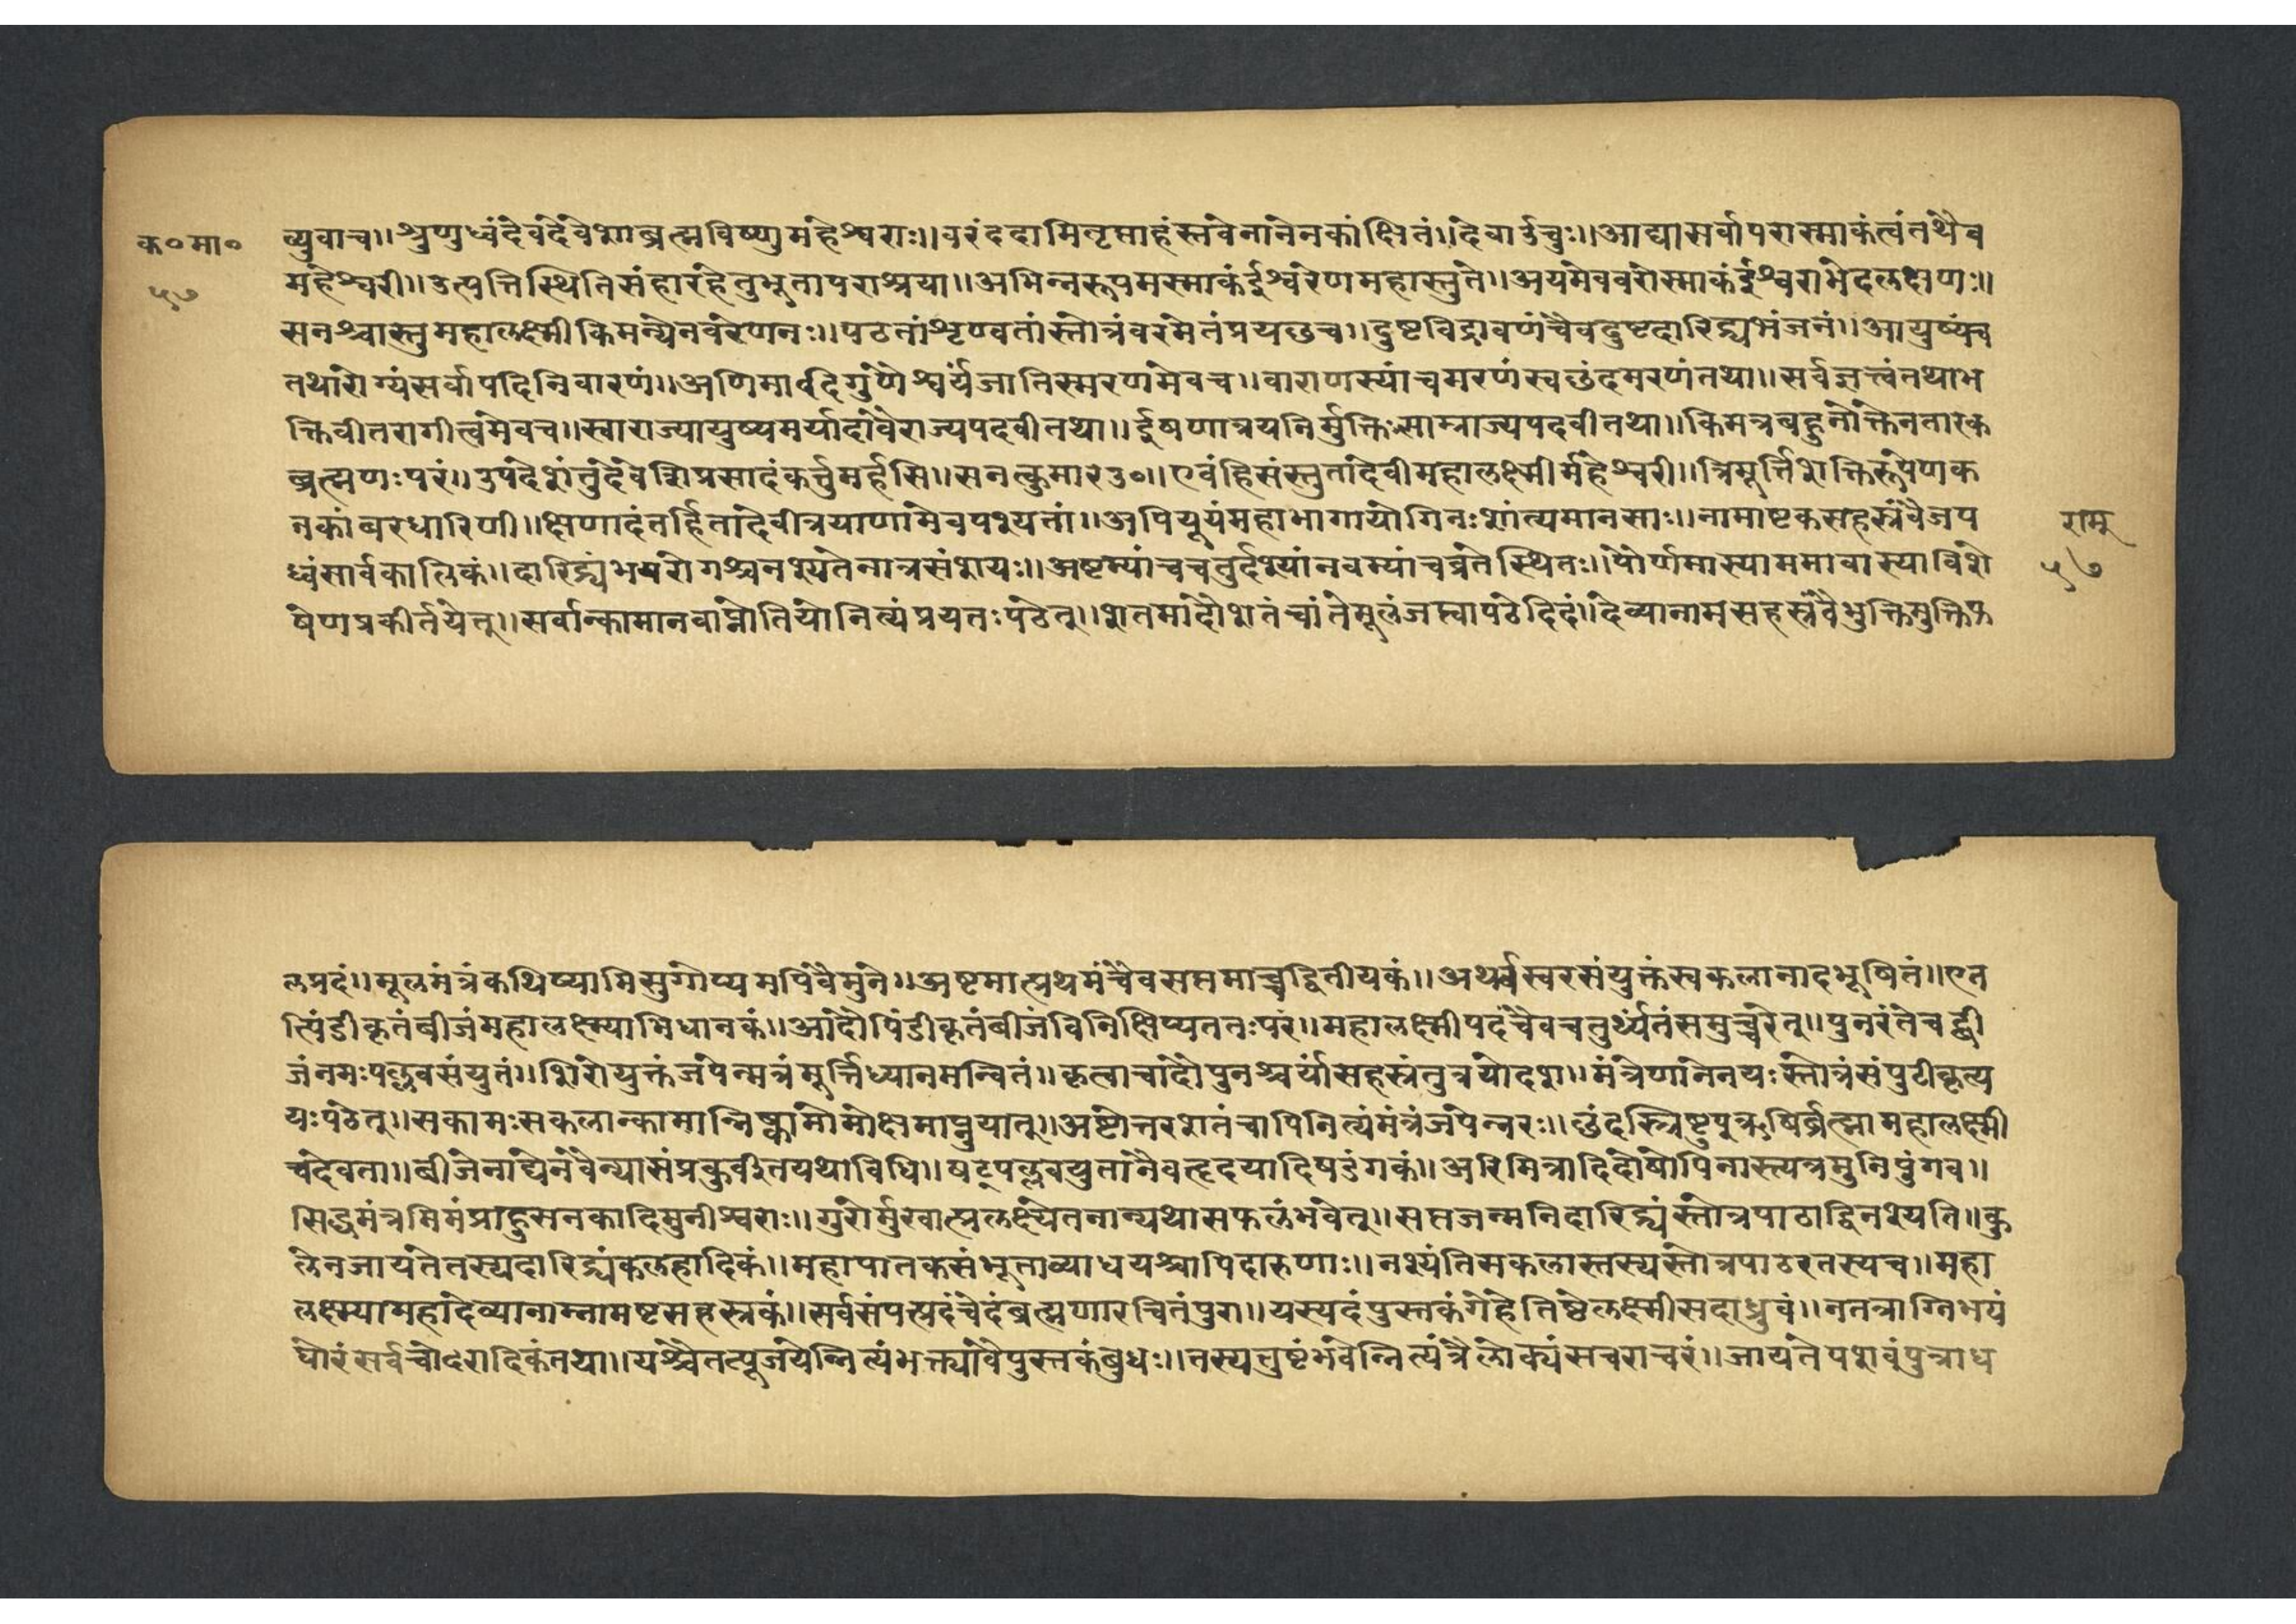 क॰मा॰
५७
व्युवाच।।श्रुणुध्वंदेवदेवेशाब्रह्मविष्णुमहेश्वराः।।वरंददामितृप्ताहंस्तवेनानेनकांक्षितं।।देवाऊचुः।।आद्यासर्वापरास्माकंत्वंतथैव
महेश्वरी।।उत्पत्तिस्थितिसंहारहेतुभूतापराश्रया।।अभिन्नरूपमस्माकंईश्वरेणमहास्तुते।।अयमेववरोस्माकंईश्वराभेदलक्षणः।।
सनश्चास्तुमहालक्ष्मीकिमन्येनवरेणनः।।पठतांशृण्वतांस्तोत्रंवरमेतंप्रयछच।।दुष्टविद्रावणंचैवदुष्टदारिद्र्यभंजनं।।आयुष्यंच
तथारोग्यंसर्वापदिनिवारणं।।अणिमावदिगुणैश्वर्यंजातिस्मरणमेवच।।वाराणस्यांचमरणंस्वछंदमरणंतथा।।सर्वज्ञत्त्वंतथाभ
क्तिवीतरागीत्वमेवच।।स्वाराज्यायुष्यमर्यादावैराज्यपदवीतथा।।ईषणात्रयनिर्मुक्तिःसाम्राज्यपदवीतथा।।किमत्रबहुनोक्तेनतारकं
ब्रह्मणःपरं।।उपदेशंतुदेवेशिप्रसादंकर्त्तुमर्हसि।।सनत्कुमारउ॰।।एवंहिसंस्तुतादेवीमहालक्ष्मीर्महेश्वरी।।त्रिमूर्त्तिशक्तिरूपेणक
नकांबरधारिणी।।क्षिणादंतर्हितादेवीत्रयाणामेवपश्यतां।।अपियूयंमहाभागायोगिनःशांत्यमानसाः।।नामाष्टकसहस्रंवैजप
ध्वंसार्वकालिकं।।दारिद्र्यंभयरोगश्चनश्यतेनात्रसंशयः।।अष्टम्यांचचतुर्दश्यांनवम्यांचव्रतेस्थितः।।पौर्णमास्याममावास्याविशे
षेणप्रकीर्तयेत्।।सर्वान्कामानवाप्नोतियोनित्यंप्रयतःपठेत्।।शतमादौशतंचांतेमूलंजप्त्वापठेदिदं।।देव्यानामसहस्रंवैभुक्तिमुक्तिफ
रामु
५७
लप्रदं।।मूलमंत्रंकथिष्यामिसुगोप्यमपिवैमुने।।अष्टमात्प्रथमंचैवसप्तमाच्चद्वितीयकं।।अथर्वस्वरसंयुक्तंस्वकलानादभूषितं।।एत
त्पिंडीकृतंबीजंमहालक्ष्म्याभिधानकं।।आदौपिंडीकृतंबीजंविनिक्षिप्यततःपरं।।महालक्ष्मीपदंचैवचतुर्थ्यंतंसमुच्चरेत्।।पुनरंतेचद्बी
जंनमःपल्लवसंयुतं।।शिरोयुक्तंजपेन्मत्रंमूर्त्तिध्यानमन्वितं।।कृत्वाचादौपुनश्चर्यासहस्रंतुत्रयोदश।।मंत्रेणानेनयःस्तोत्रंसंपुटीकृत्य
यःपठेत्।।सकामःसकलान्कामान्निष्कामोमोक्षमाप्नुयात्।।अष्टोत्तरशतंचापिनित्यंमंत्रंजपेन्नरः।।छंदस्त्रिष्टुपुऋषिर्ब्रह्मामहालक्ष्मी
चदेवता।।बीजेनाद्येनवैन्यासंप्रकुर्वीतयथाविधि।।षट्पल्लवयुतानैवहृदयादिषडंगकं।।अरिमित्रादिदोषोपिनास्त्यत्रमुनिपुंगव।।
सिद्धमंत्रमिमंप्राहुसनकादिमुनीश्वराः।।गुरोर्मुखात्प्रलक्ष्येतनान्यथासफलंभवेत्।।सप्तजन्मनिदारिद्र्यंस्तोत्रपाठाद्विनश्यति।।कु
लेनजायतेतस्यदारिद्र्यंकलहादिकं।।महापातकसंभूताव्याधयश्चापिदारुणाः।।नश्यंतिसकलास्तस्यस्तोत्रपाठरतस्यच।।महा
लक्ष्म्यामहादेव्यानाम्नामष्टसहस्रकं।।सर्वसंपत्प्रदंचेदंब्रह्मणारचितंपुरा।।यस्यदंपुस्तकंगेहेतिष्ठेलक्ष्मीसदाध्रुवं।।नतत्राग्निभयं
घोरंसर्वचोदरादिकंतथा।।यश्चैतत्पूजयेन्नित्यंभक्त्यावैपुस्तकंबुधः।।तस्यत्तुष्टंभवेन्नित्यंत्रैलोक्यंसचराचरं।।जायतेपशवुंपुत्राध